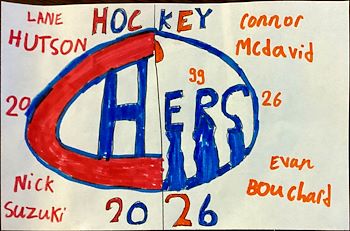 HOCKEY
LANE
HUTSON
Connor
McDavid
20
CHERS
99
26
Nick
Suzuki
Evan
Bouchard
2026